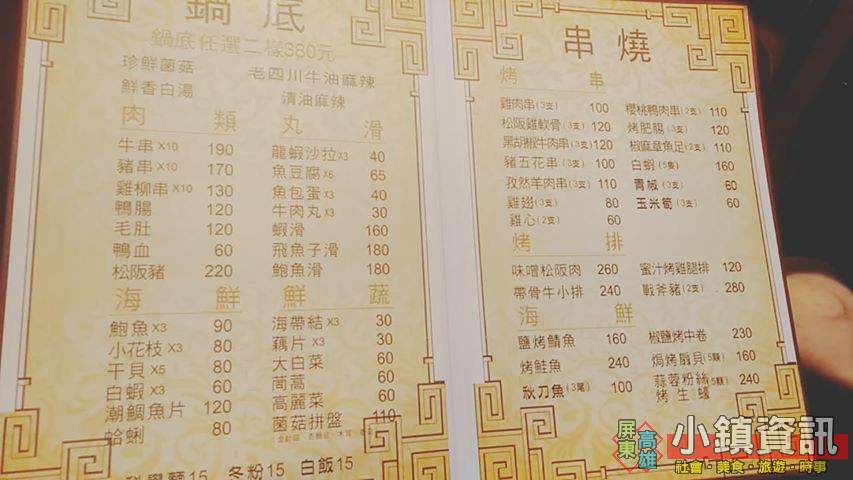 鍋底
鍋底任選二樣380元
珍鮮菌菇 老四川牛油麻辣
鮮香白湯 清油麻辣
肉類
牛串X10 190
豬串X10 170
雞柳串X10 130
鴨腸 120
毛肚 120
鴨血 60
松阪豬 220
海鮮
鮑魚X3 90
小花枝X3 80
干貝X5 80
白蝦X3 60
潮鯛魚片 120
蛤蜊 80
丸滑
龍蝦沙拉X3 40
魚豆腐X6 65
魚包蛋X3 40
牛肉丸X3 30
蝦滑 160
飛魚子滑 180
鮑魚滑 180
鮮蔬
海帶結X3 30
藕片X3 30
大白菜 60
茼蒿 60
高麗菜 60
菌菇拼盤 110
科學麵15 冬粉15 白飯15
串燒
烤串
雞肉串(3支) 100
松阪雞軟骨(3支) 120
黑胡椒牛肉串(3支) 120
豬五花串(3支) 120
孜然羊肉串(3支) 110
雞翅(3支) 80
雞心(2支) 60
櫻桃鴨肉串(2支) 110
烤肥腸(3支) 120
椒麻章魚足(2支) 110
白蝦(5隻) 160
青椒(3支) 60
玉米筍(3支) 60
烤排
味噌松阪肉 260
帶骨牛小排 240
蜜汁烤雞腿排 120
戰斧豬(2支) 280
海鮮
鹽烤鯖魚 160
烤鮭魚 240
秋刀魚(3尾) 100
椒鹽烤中卷 230
焗烤扇貝(5顆) 160
蒜蓉粉絲烤生蠔(5顆) 240
屏東高雄
小鎮資訊
社會・美食・旅遊・時事